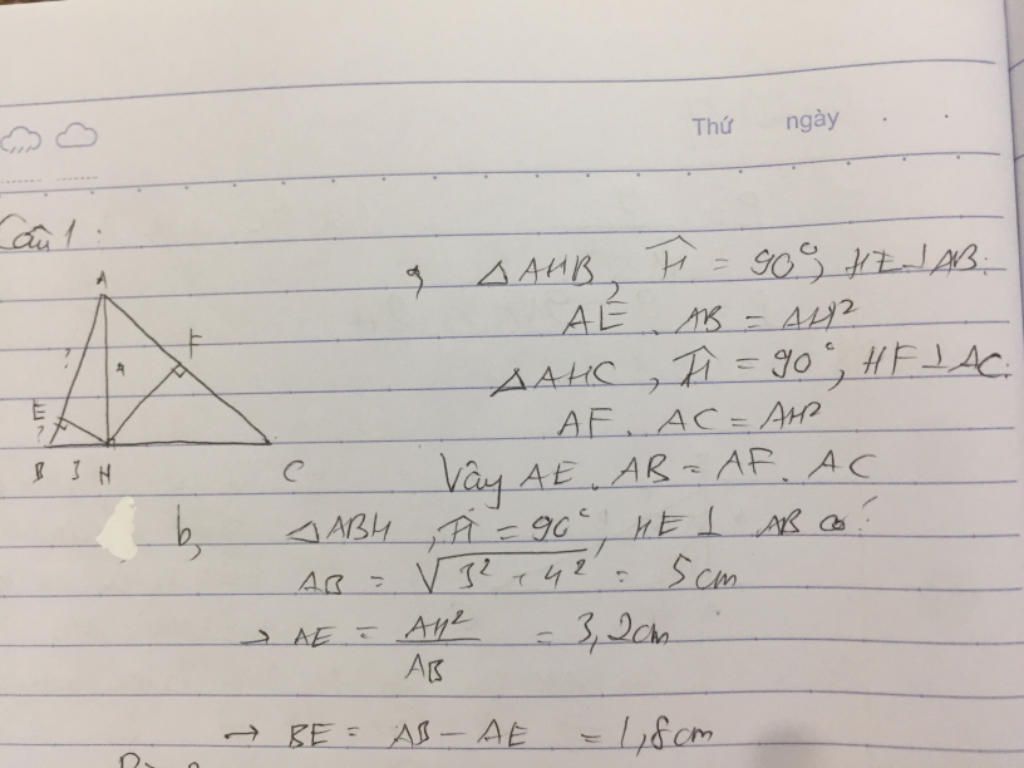 Thứ ngày
Câu 1:
a, △AHB, Ĥ = 90°, HE ⊥ AB:
AE . AB = AH²
△AHC, Ĥ = 90°, HF ⊥ AC:
AF . AC = AH²
Vậy AE . AB = AF . AC
A
F
?
4
E
?
B 3 H C
b, △ABH, Ĥ = 90°, HE ⊥ AB có:
AB = √(3² + 4²) = 5cm
→ AE = AH²/AB = 3,2cm
→ BE = AB - AE = 1,8cm